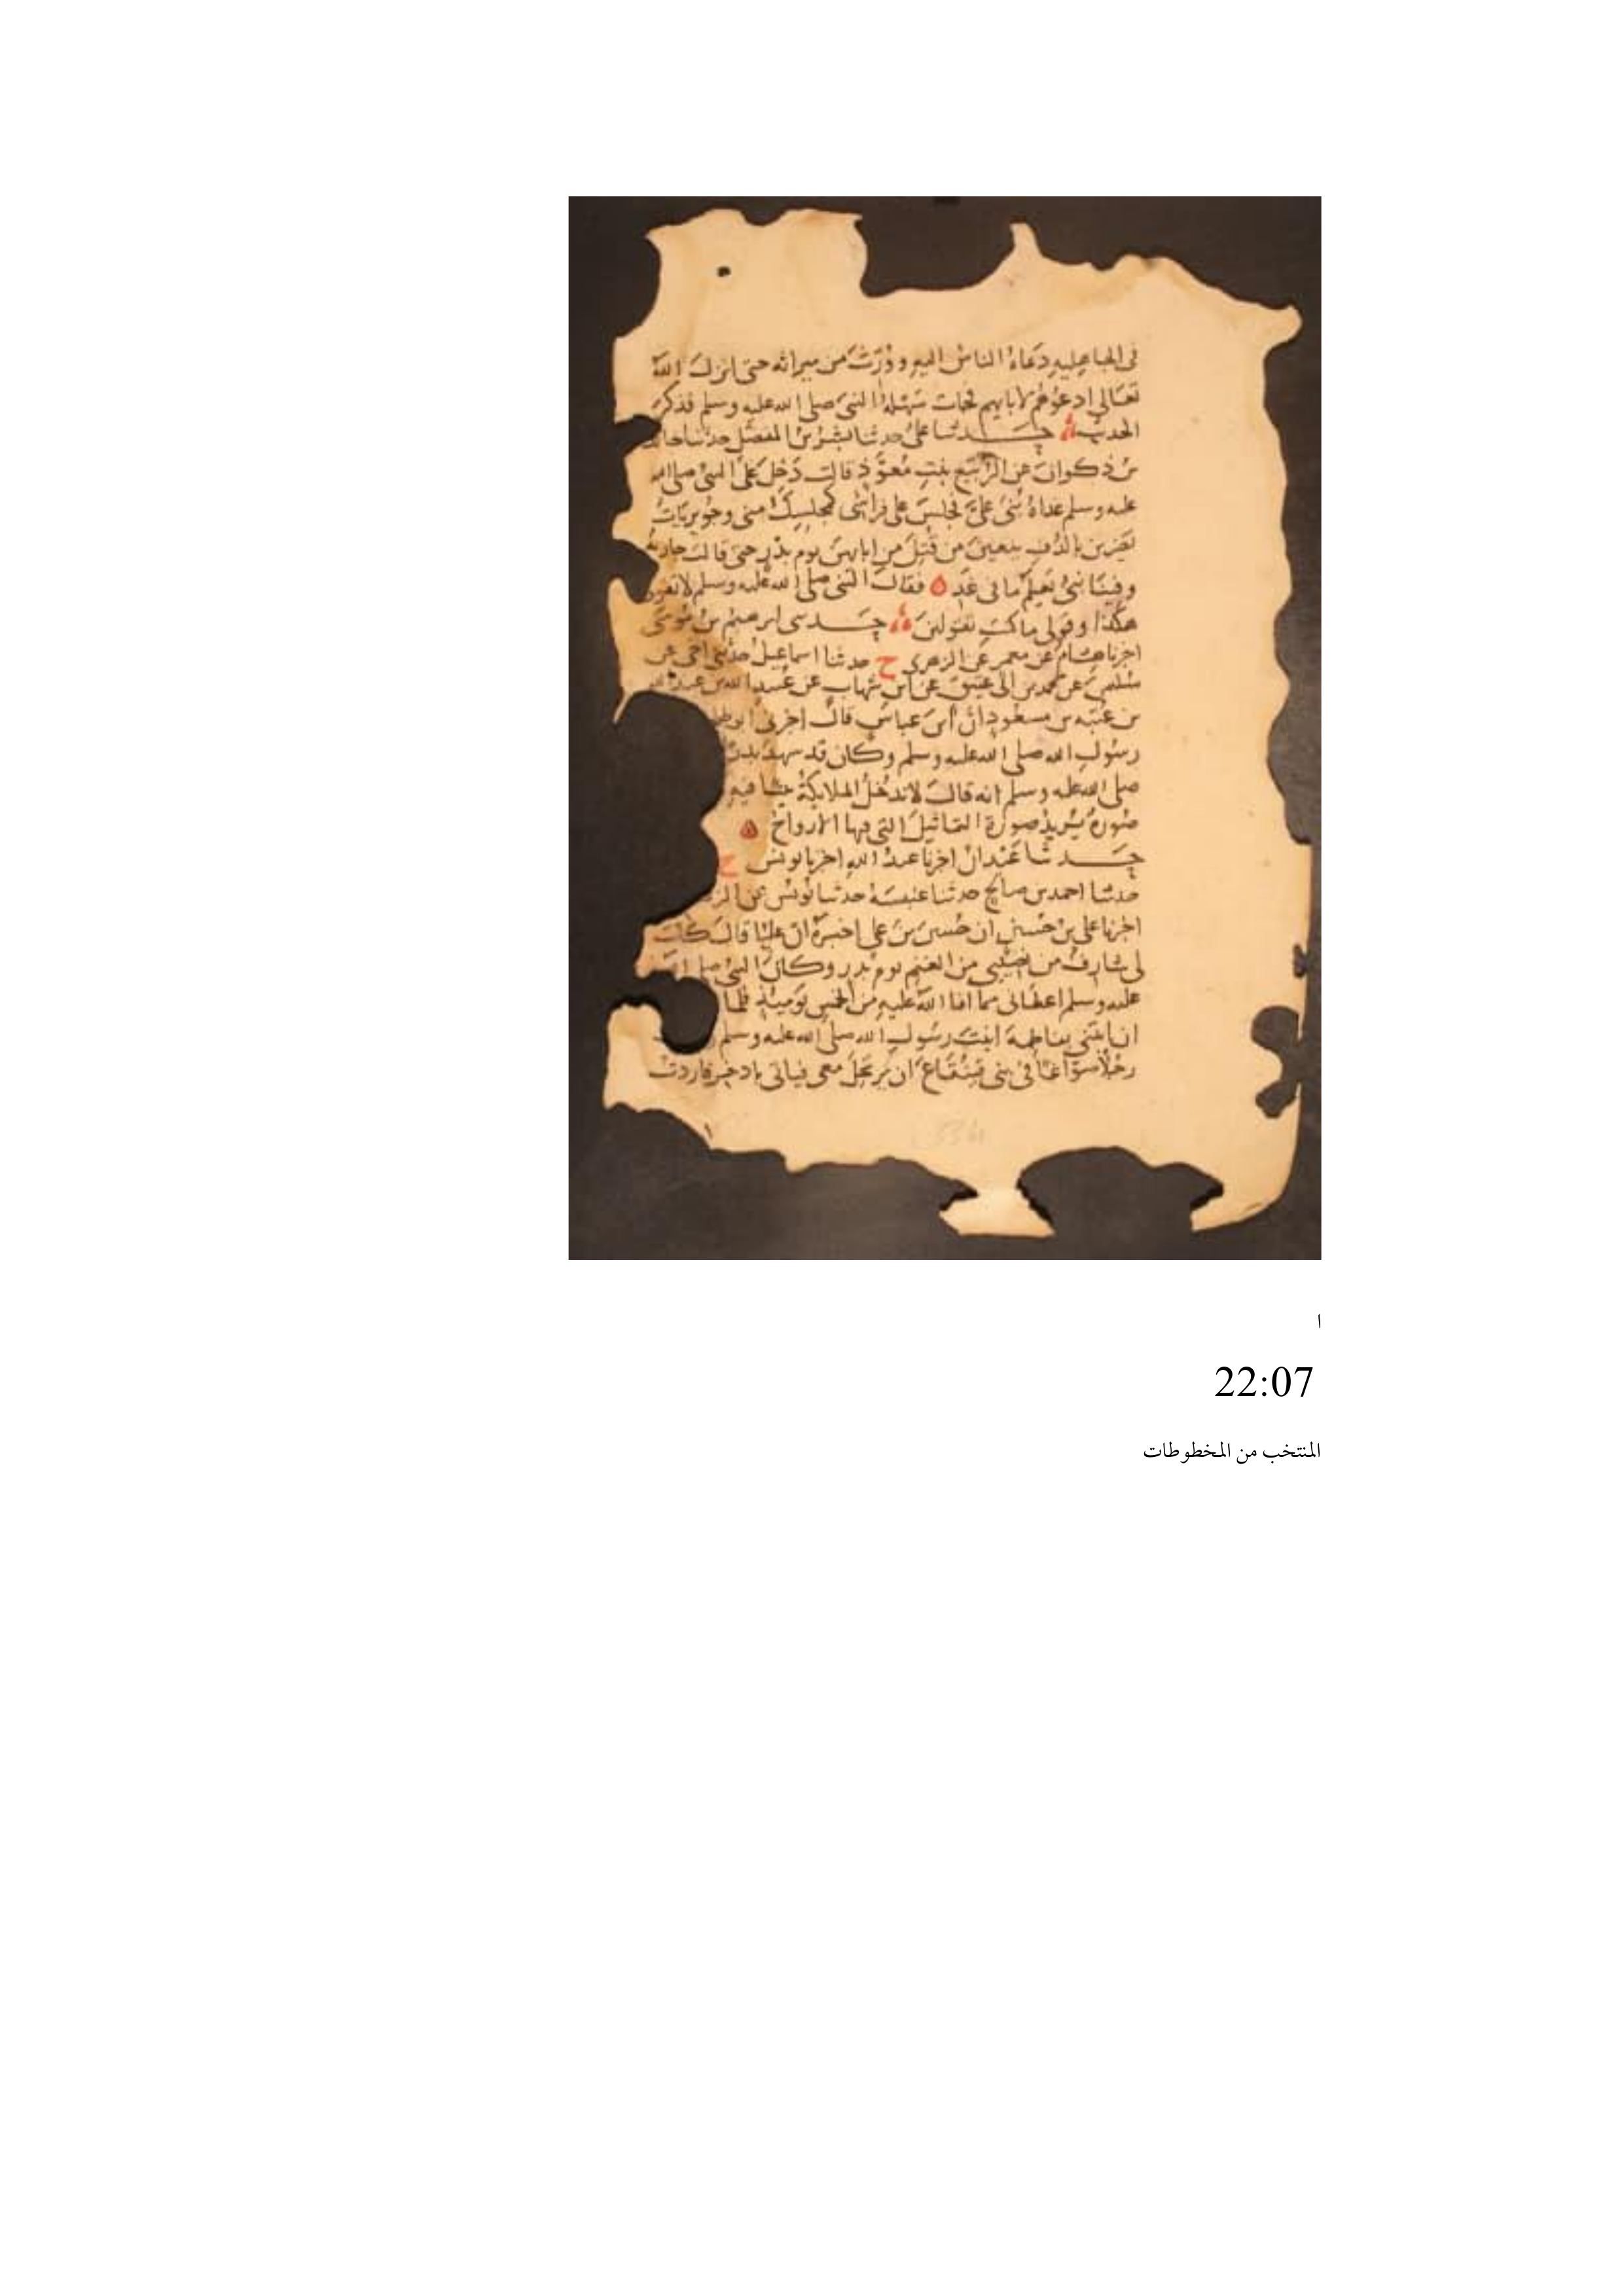 في الجاهليه دعاه الناس اليه وورث من ميراثه حتى انزل الله
تعالى ادعوهم لابايهم فجات سهلة النبي صلى الله عليه وسلم فذكر
الحديث حدثنا علي حدثنا بشر بن المفضل حدثنا خالد
بن ذكوان عن الربيع بنت معوذ قالت دخل علي النبي صلى الله
عليه وسلم غداة بني علي فجلس على فراشي كمجلسك مني وجويريات
يضربن بالدف يندبن من قتل من ابايهن يوم بدر حتى قالت جارية
وفينا نبي يعلم ما في غد ٥ فقال النبي صلى الله عليه وسلم لا تقولي
هكذا وقولي ما كنت تقولين حدثني ابرهيم بن موسى
اخبرنا هشام عن معمر عن الزهري ح حدثنا اسماعيل حدثني اخي عن
سليمن عن محمد بن ابي عتيق عن ابن شهاب عن عبيد الله بن عبد الله
بن عتبه بن مسعود ان ابن عباس قال اخبرني ابو طلحة
رسول الله صلى الله عليه وسلم وكان قد شهد بدرا
صلى الله عليه وسلم انه قال لا تدخل الملايكة بيتا فيه
صورة يريد صورة التماثيل التي فيها الارواح ٥
حدثنا عبدان اخبرنا عبد الله اخبرنا يونس ح
حدثنا احمد بن صالح حدثنا عنبسة حدثنا يونس عن الز
اخبرنا علي بن حسين ان حسين بن علي اخبره ان عليا قال كانت
لي شارف من نصيبي من المغنم يوم بدر وكان النبي صلى الله
عليه وسلم اعطاني مما افا الله عليه من الخمس يوميذ فلما
ان ابتني بفاطمة ابنت رسول الله صلى الله عليه وسلم
رجلا صواغا في بني قينقاع ان يرتحل معي فياتي باذخر فاردت
334
ا
22:07
المنتخب من المخطوطات